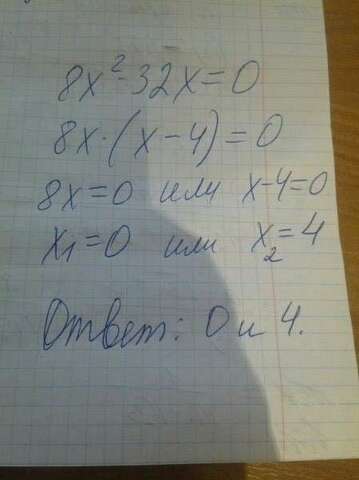 8x²-32x=0
8x·(x-4)=0
8x=0 или x-4=0
x₁=0 или x₂=4
Ответ: 0 и 4.